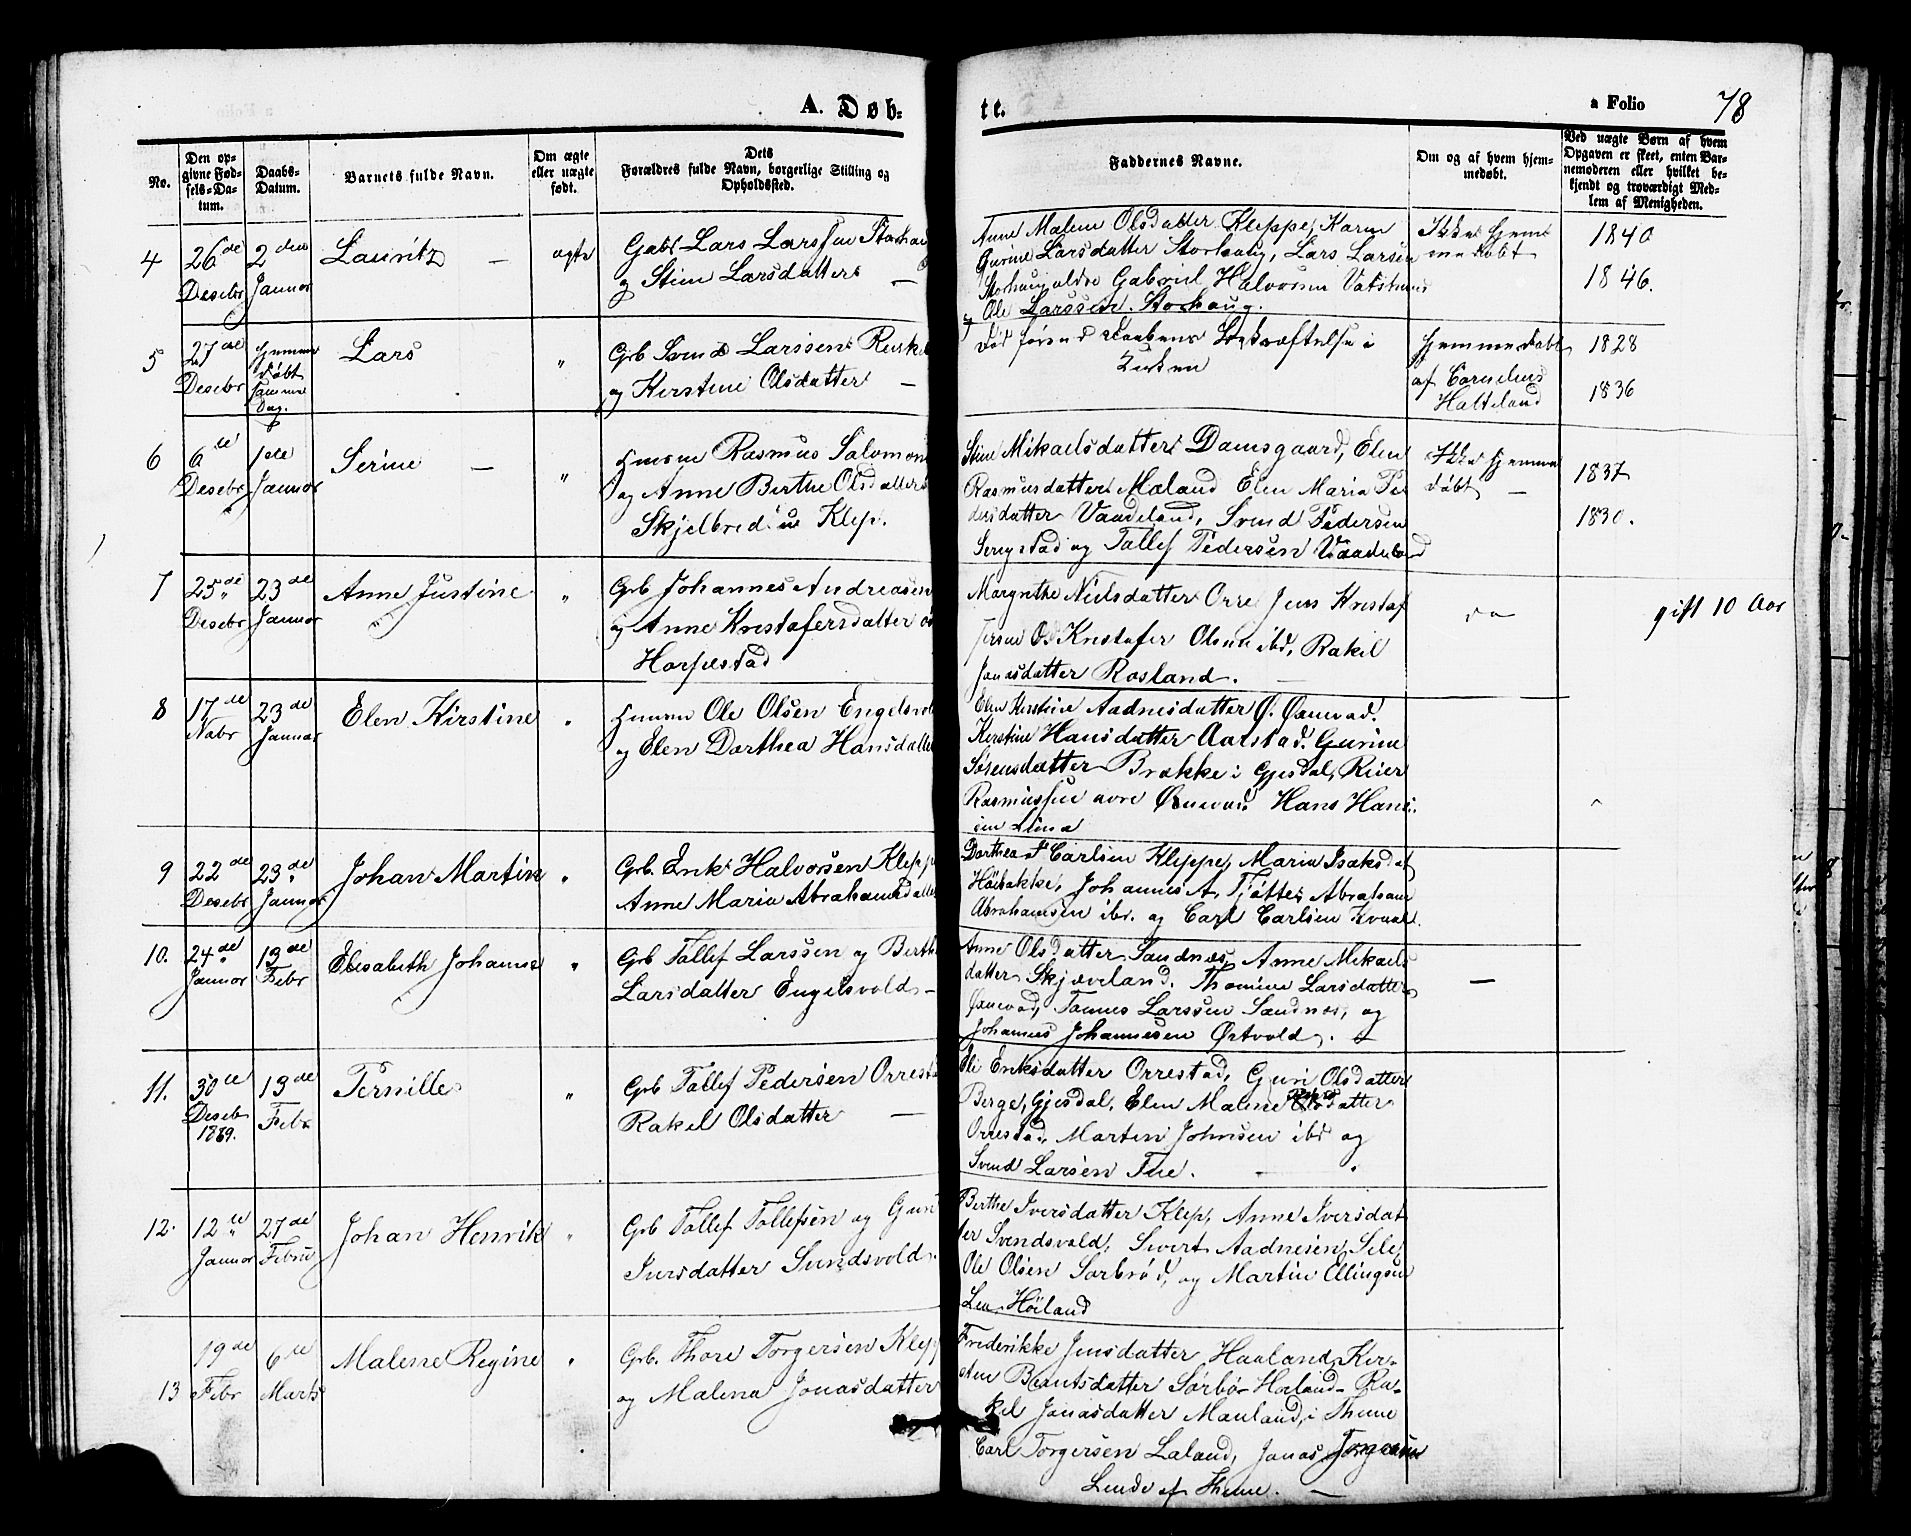 A. Døb-
te.
a Folio
78
No.
Den op-
givne Fød-
sels-Da-
tum.
Daabs-
Datum.
Barnets fulde Navn.
Om ægte
eller uægte
født.
Dets
Forældres fulde Navn, borgerlige Stilling og
Opholdssted.
Faddernes Navne.
Om og af hvem hjem-
medøbt.
Ved uægte Børn af hvem
Opgaven er skeet, enten Bar-
nemoderen eller hvilket be-
kjendt og troværdigt Med-
lem af Menigheden.
4
26de
Desebr
2den
Januar
Lauritz
ægte
Lars Larssen Storhau
og Stine Larsdatter
Anne Malene Olsdatter Kleppe, Karen
Gurine Larsdatter Storhaug, Lars Larsen
Storhaug Gabriel Halvorsen
og Ole Larssen Storhaug.
Ikke hjem
medøbt
1840
1846.
5
27de
Desebr
hjemme
døbt
samme
Dag.
Lars
"
Grb Svend Larssen
og Kirstine Olsdatter
Død førend Daabens Bekræftelse i
Kirken
hjemmedøbt
af Cornelius
Halteland
1828
1836
6
6te
Desebr
1ste
Januar
Serine
"
Rasmus Salomon
og Anne Berthe Olsdatter
Skjelbred i Klep.
Stine Mikaelsdatter Damsgaard, Elen
Rasmusdatter Mæland Elen Maria Pe
dersdatter Vaadeland, Svend Pedersen
og Tollef Pedersen Vaadeland
Ikke hjemme
døbt
1837
1830.
7
25de
Desebr
23de
Januar
Anne Justine
"
Grb Johannes Andreasen
og Anne Kristofersdatter
Horpestad
Margrethe Nielsdatter Orre Jens Kristof
fersen Kristofer Olsen ibd, Rakel
Jonasdatter Rosland.
gift 10 Aar
8
17de
Nobr
23de
Januar
Elen Kirstine
"
Ole Olsen Engelsvol
og Elen Dorthea Hansdatte
Elen Kirstine Aadnesdatter Ø. Øxnevad.
Kirstine Hansdatter Aarstad. Gurine
Sørensdatter Brække i Gjesdal, Reier
Rasmussen Øxnevad Hans Hans
sen Lima
9
22de
Desebr
23de
Januar
Johan Martin
"
Grb. Erik Halvorsen Klepp
Anne Maria Abrahamsdatte
Dorthea Carlsen Kleppe, Maria Isaksdat
Høibakke, Johannes A. Tjøtte, Abraham
Abrahamsen ibr. og Carl Carlsen Kvaal.
10.
24de
Januar
13de
Febr
Elisabeth Johanne
"
Grb Tollef Larssen og Berth
Larsdatter Engelsvold
Anne Olsdatter Sandnes, Anne Mikaels
datter Skjæveland. Thomine Larsdatter
Øxnevad, Tønnes Larssen Sandnes, og
Johannes Johannesen Østvold.
11.
30te
Deseb
1869.
13de
Febr
Pernille
"
Grb Tollef Pedersen Orresta
Rakel Olsdatter
Eriksdatter Orrestad, Guri Olsdatter
Berge, Gjesdal, Elen Malene datter
Orrestad, Martin Johnsen ibd og
Svend Larsen Tue.
12.
12te
Januar
27de
Febru
Johan Henrik
"
Grb Tollef Tollefsen og Guri
Iversdatter Svendsvold
Berthe Iversdatter Klep, Anne Iversdat
ter Svendsvold, Sivert Aadnesen, Sele,
Ole Olsen Sørbrød, og Martin Ellingsen
Høiland
13
19de
Febr
6te
Marts
Malene Regine
"
Grb. Thore Torgersen Klepp
og Malena Jonasdatter
Frederikke Jensdatter Haaland, Kir-
sten Berntsdatter Sørbø Høiland Ra-
kel Jonasdatter Mauland, i Thime
Carl Torgersen Laland, Jonas Torgersen
Lende af Thime.